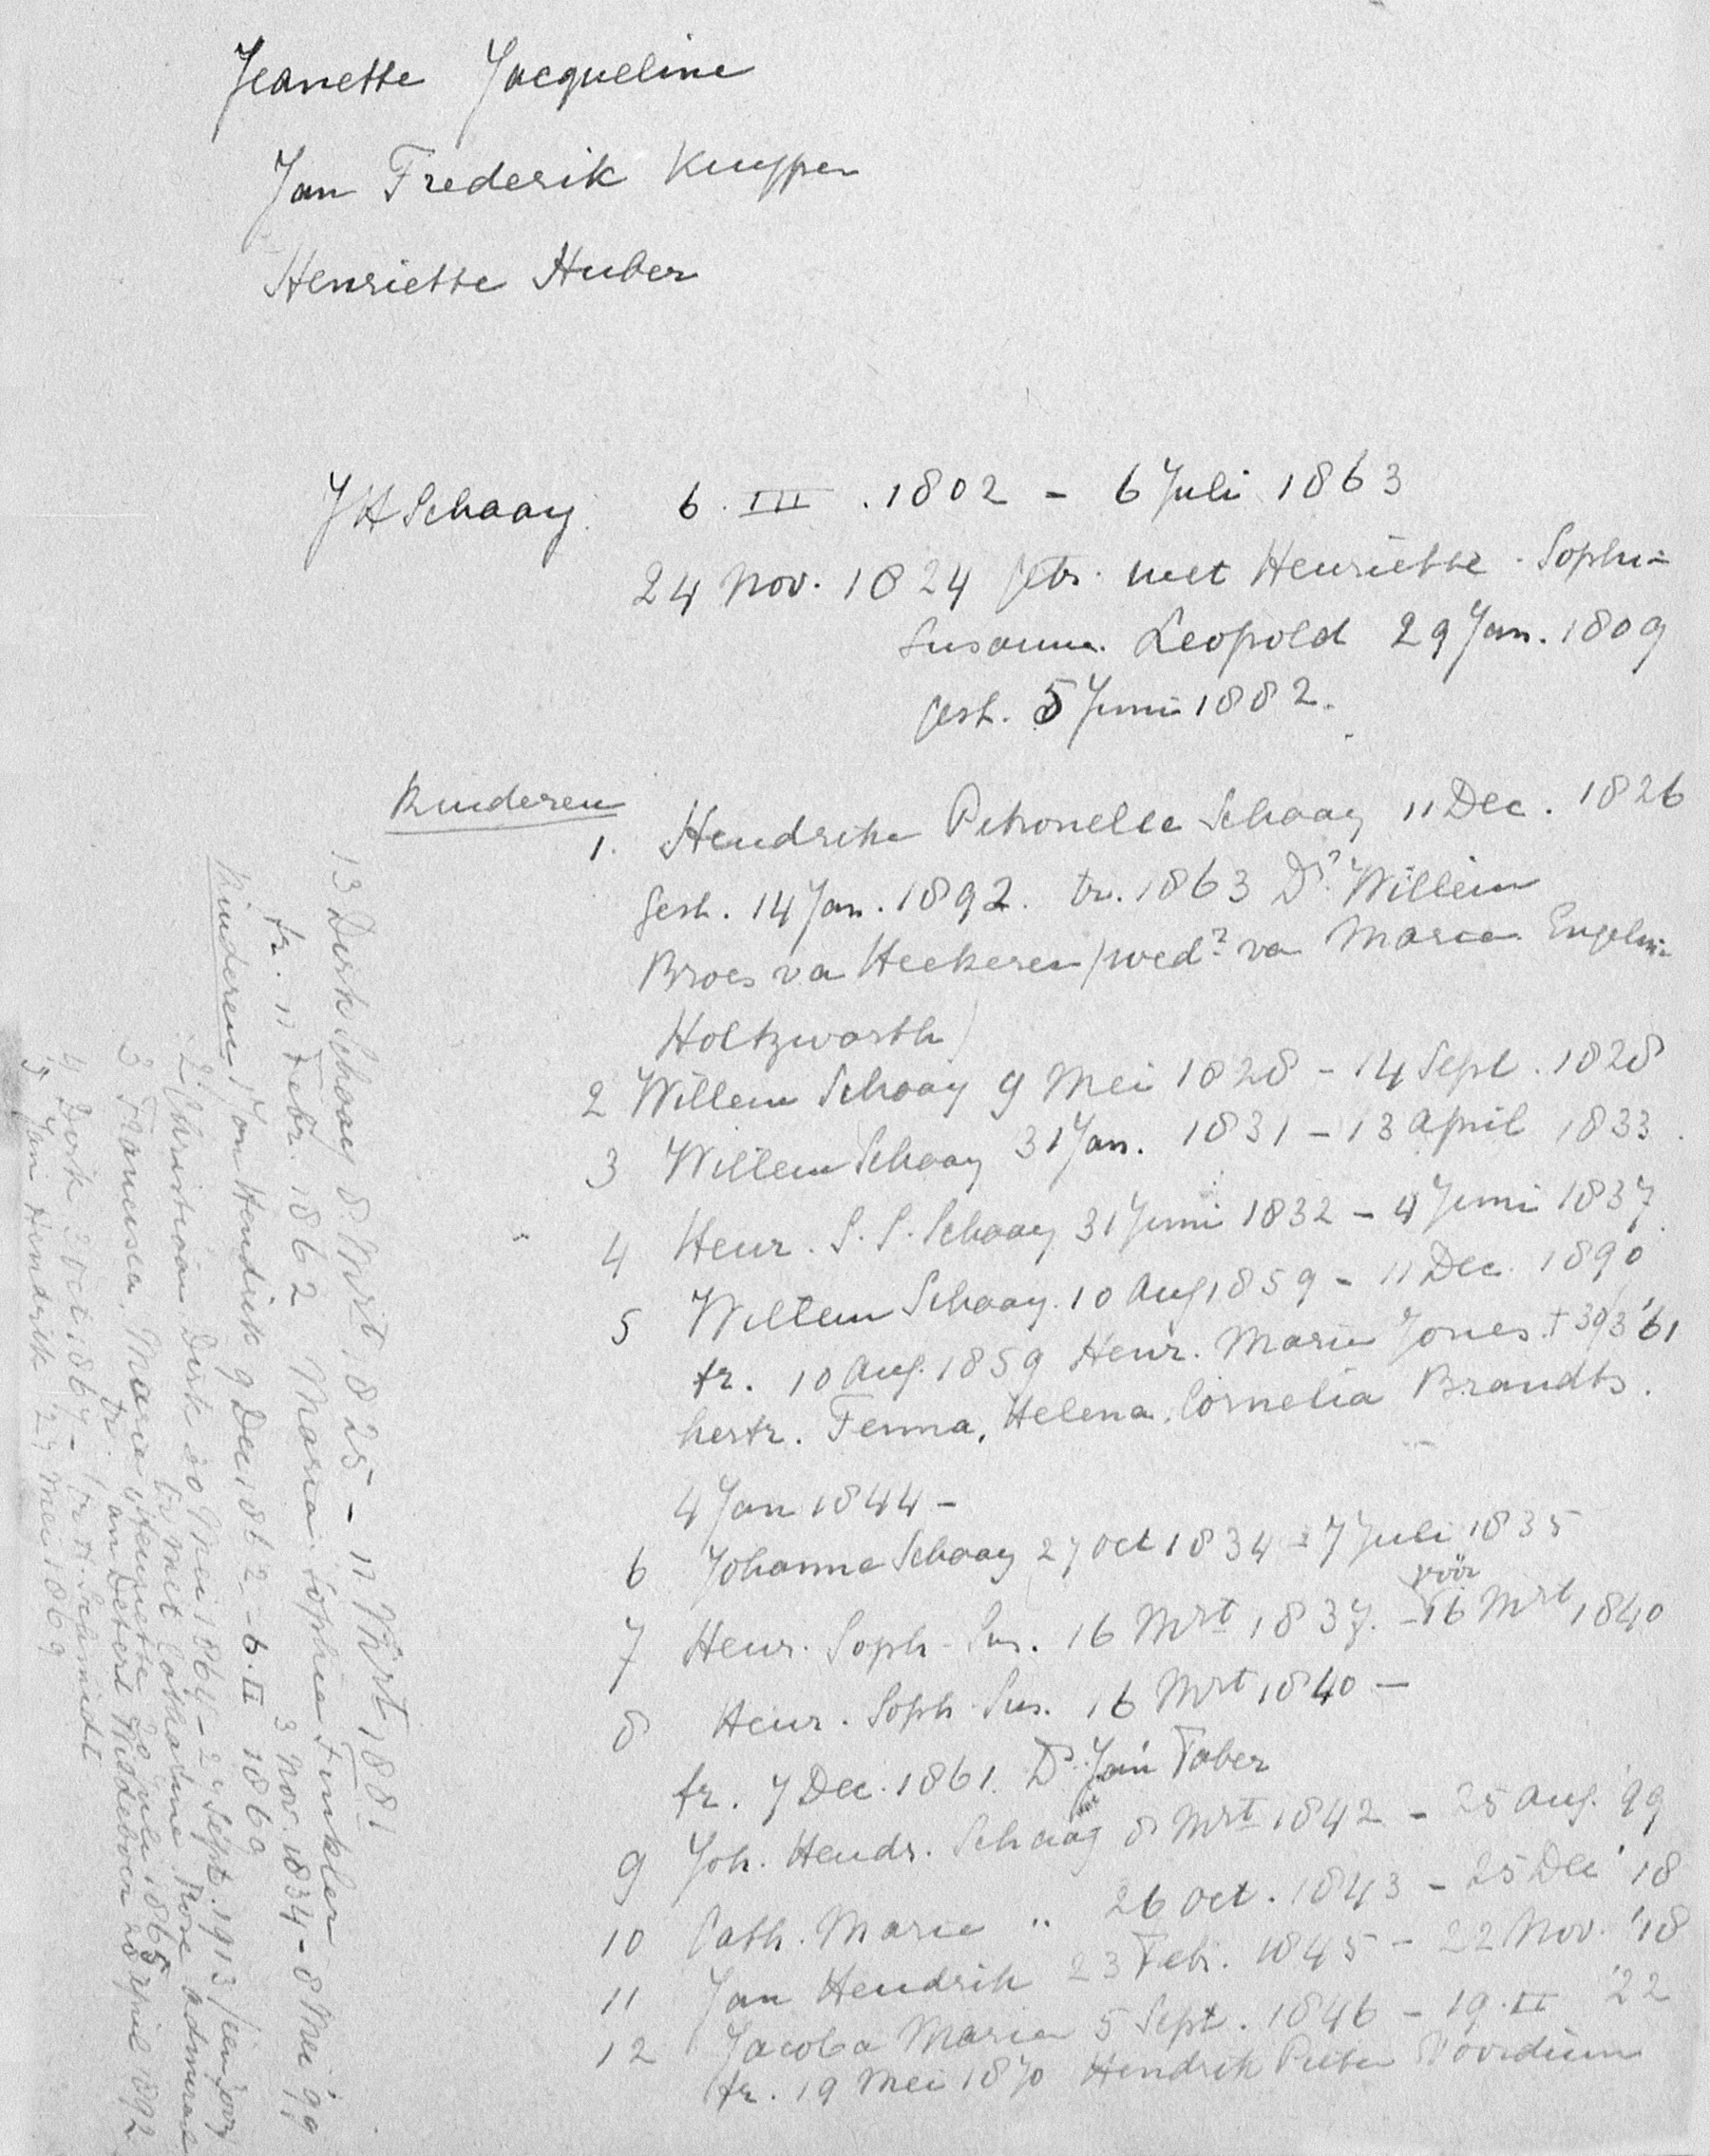 Jeanette Jacqueline
Jan Frederik Kuyper
Henriette Huber
J H Schaay. 6. III. 1802 - 6 Juli 1863
24 Nov. 1824 getr. met Henriette Sophia
Susanna Leopold 29 Jan. 1809
gest. 5 Juni 1882.
Kinderen
1. Hendrika Petronella Schaay 11 Dec. 1826
gest. 14 Jan. 1892. tr. 1863 Ds. Willem
Broes va Heekeren (wedr va Maria
Holtzwarth)
2 Willem Schaay 9 Mei 1828 - 14 Sept. 1828
3 Willem Schaay 31 Jan. 1831 - 13 April 1833.
4 Henr. S. S. Schaay 31 Juni 1832 - 4 Juni 1837.
5 Willem Schaay. 10 Aug 1859 - 11 Dec. 1890
tr. 10 Aug. 1859 Henr. Maria Jones + 30/3 '61
hertr. Fenna, Helena, Cornelia Brandts.
4 Jan 1844 -
6 Johanna Schaay 27 Oct 1834 - 7 Juli 1835
7 Henr. Soph. Sus. 16 Mrt 1837. - vóór 16 Mrt 1840
8 Henr. Soph. Sus. 16 Mrt 1840 -
tr. 7 Dec. 1861. Ds. Jan Faber
9 Joh. Hendr. Schaay 8 Mrt 1842 - 25 Aug. '99
10 Cath. Maria " 26 Oct. 1843 - 25 Dec '18
11 Jan Hendrik 23 Feb. 1845 - 22 Nov. '18
12 Jacoba Maria 5 Sept. 1846 - 19. II '22
tr. 19 Mei 1870 Hendrik Pieter
13 Dirk Schaay 8 Mrt 1825 - 11 Mrt 1881
tr. 11 Febr. 1862 Maria Sophia Finkler
3 Nov. 1834 - 8 Mei '99
Kinderen 1 Jan Hendrik 9 Dec 1862 - 6. II 1869
2 Christiaan Dirk 20 Mei 1864 - 24 Sept. 1913
tr. met Catharina Rose Admiraal
3 Francisca, Maria, Henriette 20 Juli 1865
tr. Jan Detert Wildeboer 28 April 1892
4 Dirk 3 Oct 1867 - tr. A. Schmidt
5 Jan Hendrik 27 Mei 1869